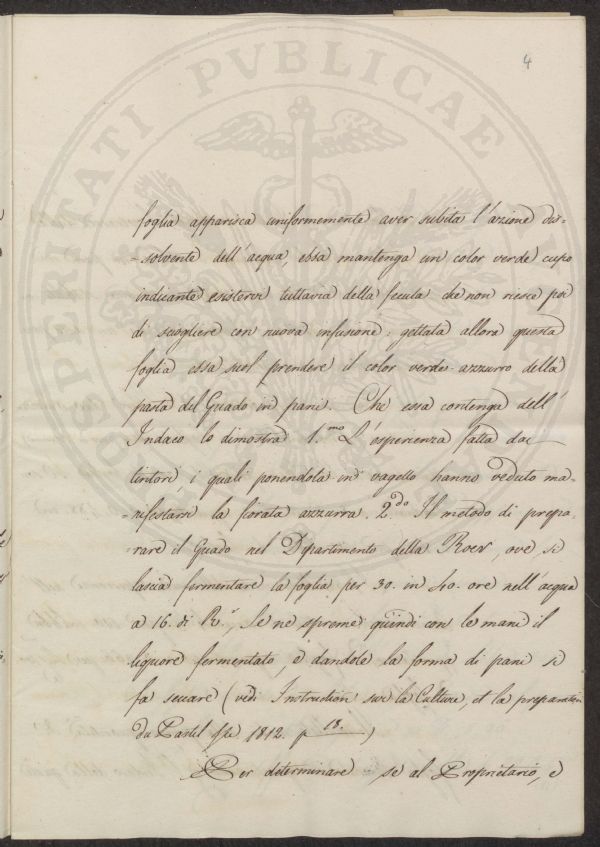 4
foglia apparisca uniformemente aver subita l'azione dis-
-solvente dell'acqua, essa mantenga un color verde cupo
indicante esistervi tuttavia della fecula che non riesce poi
di sciogliere con nuova infusione; gettata allora questa
foglia essa suol prendere il color verde-azzurro della
pasta del Guado in pani. Che essa contenga dell'
Indaco lo dimostra 1.mo L'esperienza fatta dai
tintori, i quali ponendola in vagello hanno veduto ma-
-nifestarsi la fiorata azzurra. 2.do Il metodo di prepa-
-rare il Guado nel Dipartimento della Roer, ove si
lascia fermentare la foglia per 30. in 40. ore nell'acqua
a 16. di R.r, Se ne spreme quindi con le mani il
liquore fermentato, e dandole la forma di pani si
fa seccare (vedi Instruction sur la Culture, et la preparation
du Pastel 1812. p 18.)
Per determinare se al Proprietario, e
PROSPERITATI PVBLICAE